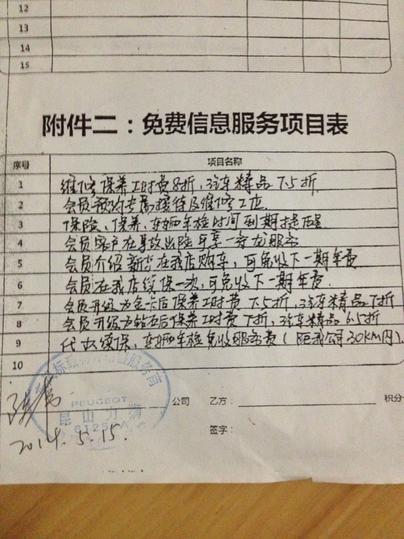 12
13
14
15
附件二：免费信息服务项目表
序号 项目名称
1 维修保养工时费8折，汽车精品7.5折
2 会员预约专属接待及维修工位
3 保险、保养、车辆年检时间到期提醒
4 会员客户在事故出险可享一条龙服务
5 会员介绍新车在我店购车，可免收下一期年费
6 会员在我店续保一次，可免收下一期年费
7 会员升级为金卡后保养工时费7.5折，汽车精品7折
8 会员升级为钻石后保养工时费7折，汽车精品6.5折
9 代办续保，车辆年检免收服务费（距我公司30KM内）
10
公司 乙方： 积分
PEUGEOT
昆山
签字：
2014.5.15.